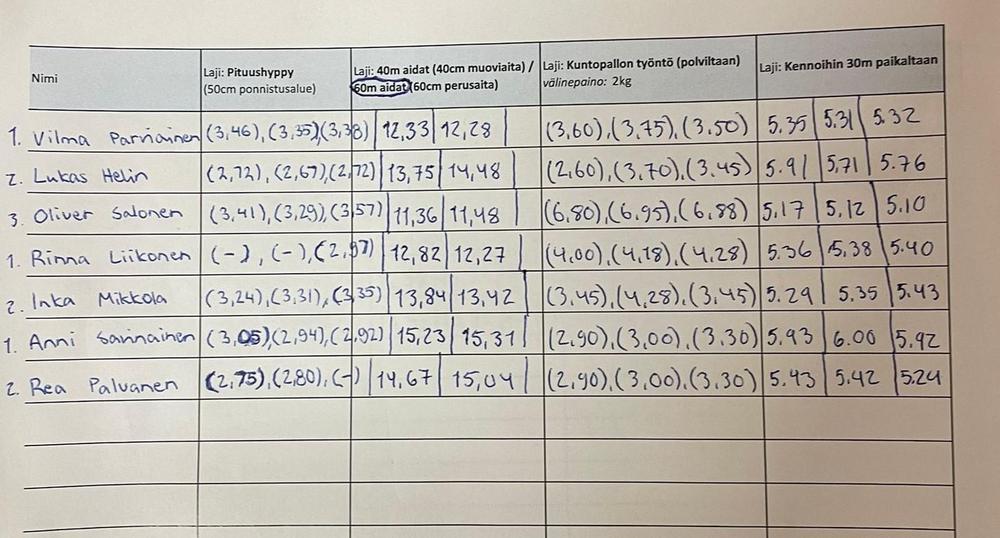 Nimi
Laji: Pituushyppy
(50cm ponnistusalue)
Laji: 40m aidat (40cm muoviaita) /
60m aidat (60cm perusaita)
Laji: Kuntopallon työntö (polviltaan)
välinepaino: 2kg
Laji: Kennoihin 30m paikaltaan
1. Vilma Parviainen (3,46), (3,35), (3,38) 12,33 12,28 (3,60), (3,75), (3,50) 5.35 5.31 5.32
2. Lukas Helin (2,72), (2,67), (2,72) 13,75 14,48 (2,60), (3,70), (3,45) 5.91 5,71 5.76
3. Oliver Salonen (3,41), (3,29), (3,57) 11,36 11,48 (6,80), (6,95), (6,88) 5.17 5.12 5.10
1. Rinna Liikonen (-), (-), (2,97) 12,82 12,27 (4,00), (4,18), (4,28) 5.36 5.38 5.40
2. Inka Mikkola (3,24), (3,31), (3,35) 13,84 13,42 (3,45), (4,28), (3,45) 5.29 5.35 5.43
1. Anni Sannainen (3,05), (2,94), (2,92) 15,23 15,31 (2,90), (3,00), (3,30) 5.93 6.00 5.92
2. Rea Paluanen (2,75), (2,80), (-) 14,67 15,04 (2,90), (3,00), (3,30) 5.43 5.42 5.24